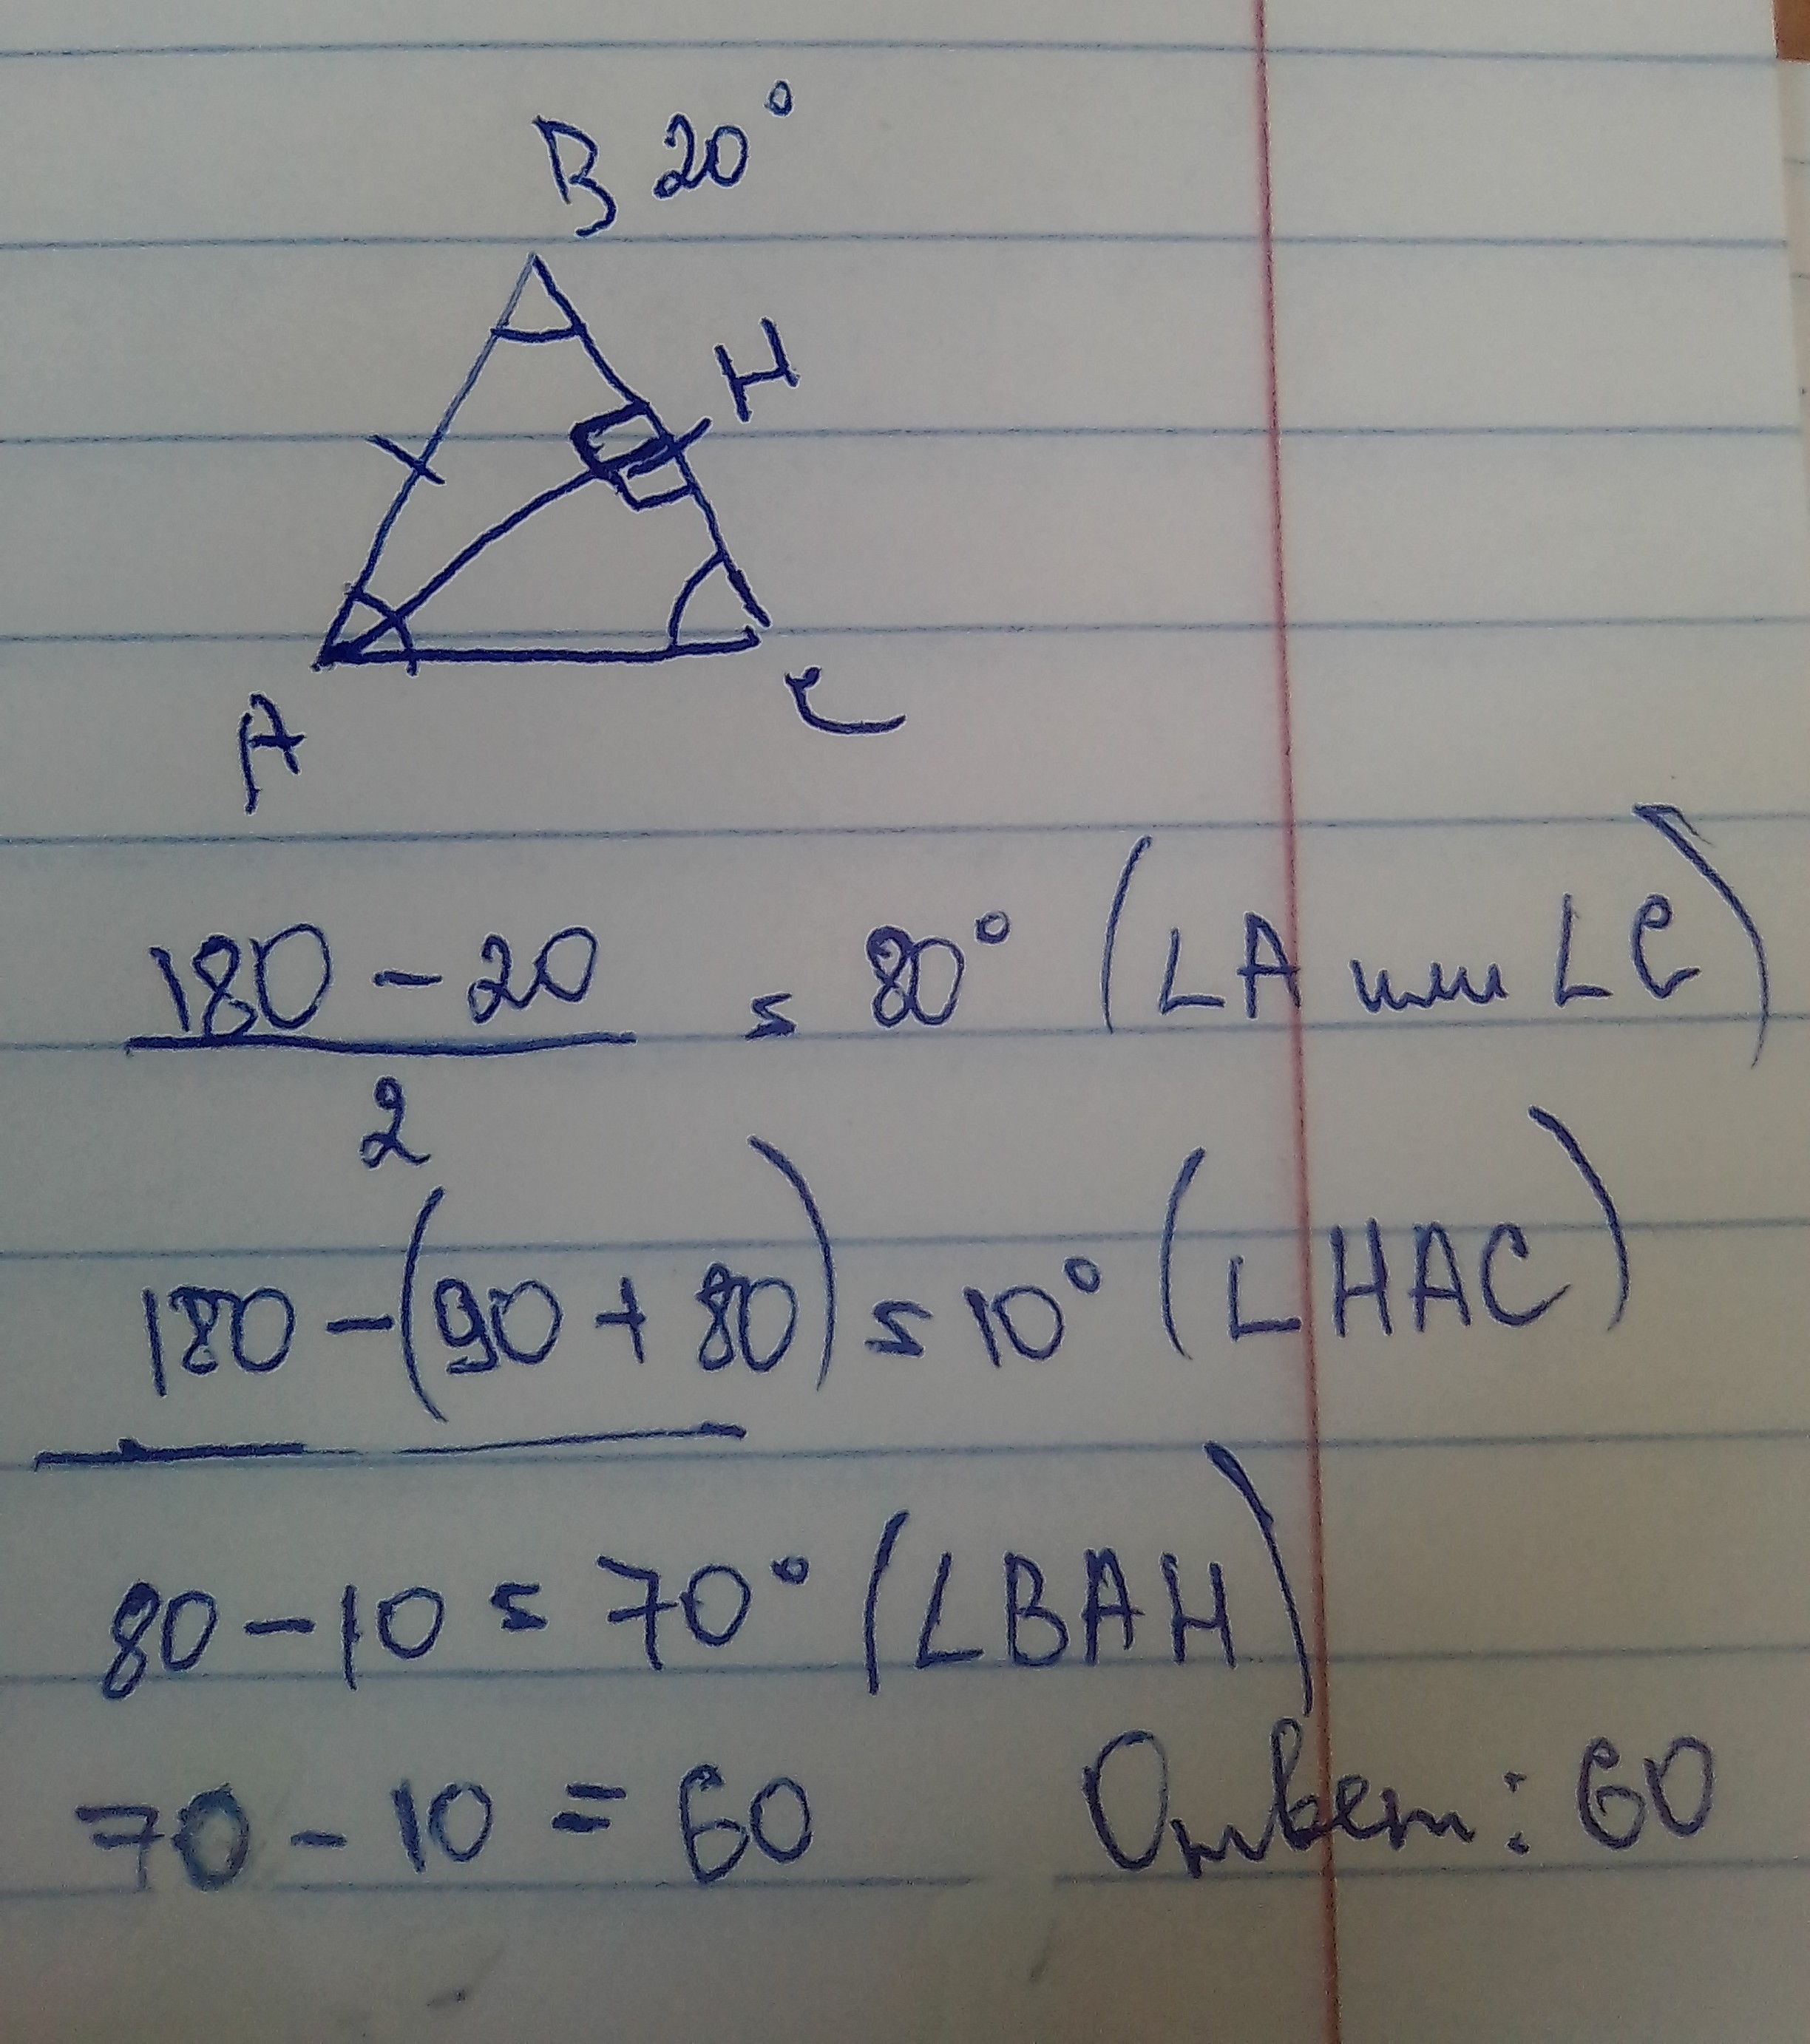 B 20°
H
A
C
180 - 20 = 80° (∠A или ∠C)
2
180 - (90 + 80) = 10° (∠HAC)
80 - 10 = 70° (∠BAH)
70 - 10 = 60 Ответ: 60